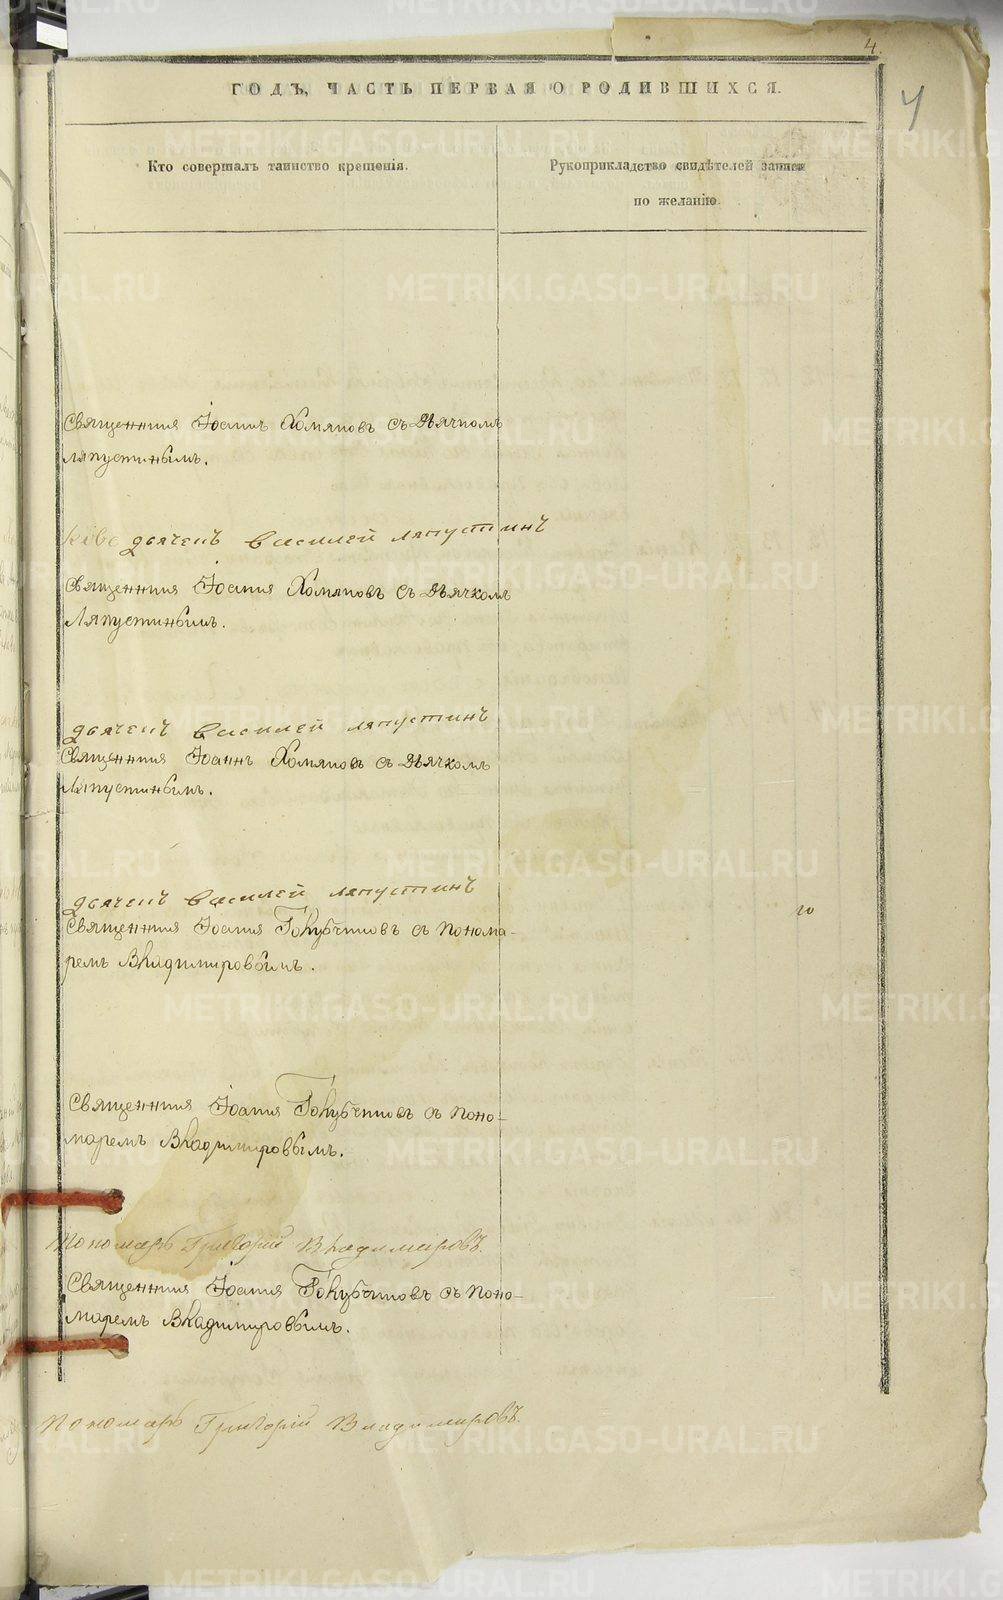 4.
4
ГОДЪ, ЧАСТЬ ПЕРВАЯ О РОДИВШИХСЯ.
Кто совершалъ таинство крещенія.
Рукоприкладство свидѣтелей записи
по желанію.
Священникъ Іоаннъ Хомяковъ съ Дьячкомъ
Ляпустинымъ.
дьячекъ Василей ляпустинъ
Священникъ Іоаннъ Хомяковъ съ Дьячкомъ
Ляпустинымъ.
дьячекъ Василей ляпустинъ
Священникъ Іоаннъ Хомяковъ съ Дьячкомъ
Ляпустинымъ.
дьячекъ Василей ляпустинъ
Священникъ Іоаннъ Голубчиковъ съ Понома-
ремъ Владимировымъ.
Священникъ Іоаннъ Голубчиковъ съ Поно-
маремъ Владимировымъ.
Пономарь Григорій Владимировъ.
Священникъ Іоаннъ Голубчиковъ съ Поно-
маремъ Владимировымъ.
Пономарь Григорій Владимировъ.
METRIKI.GASO-URAL.RU